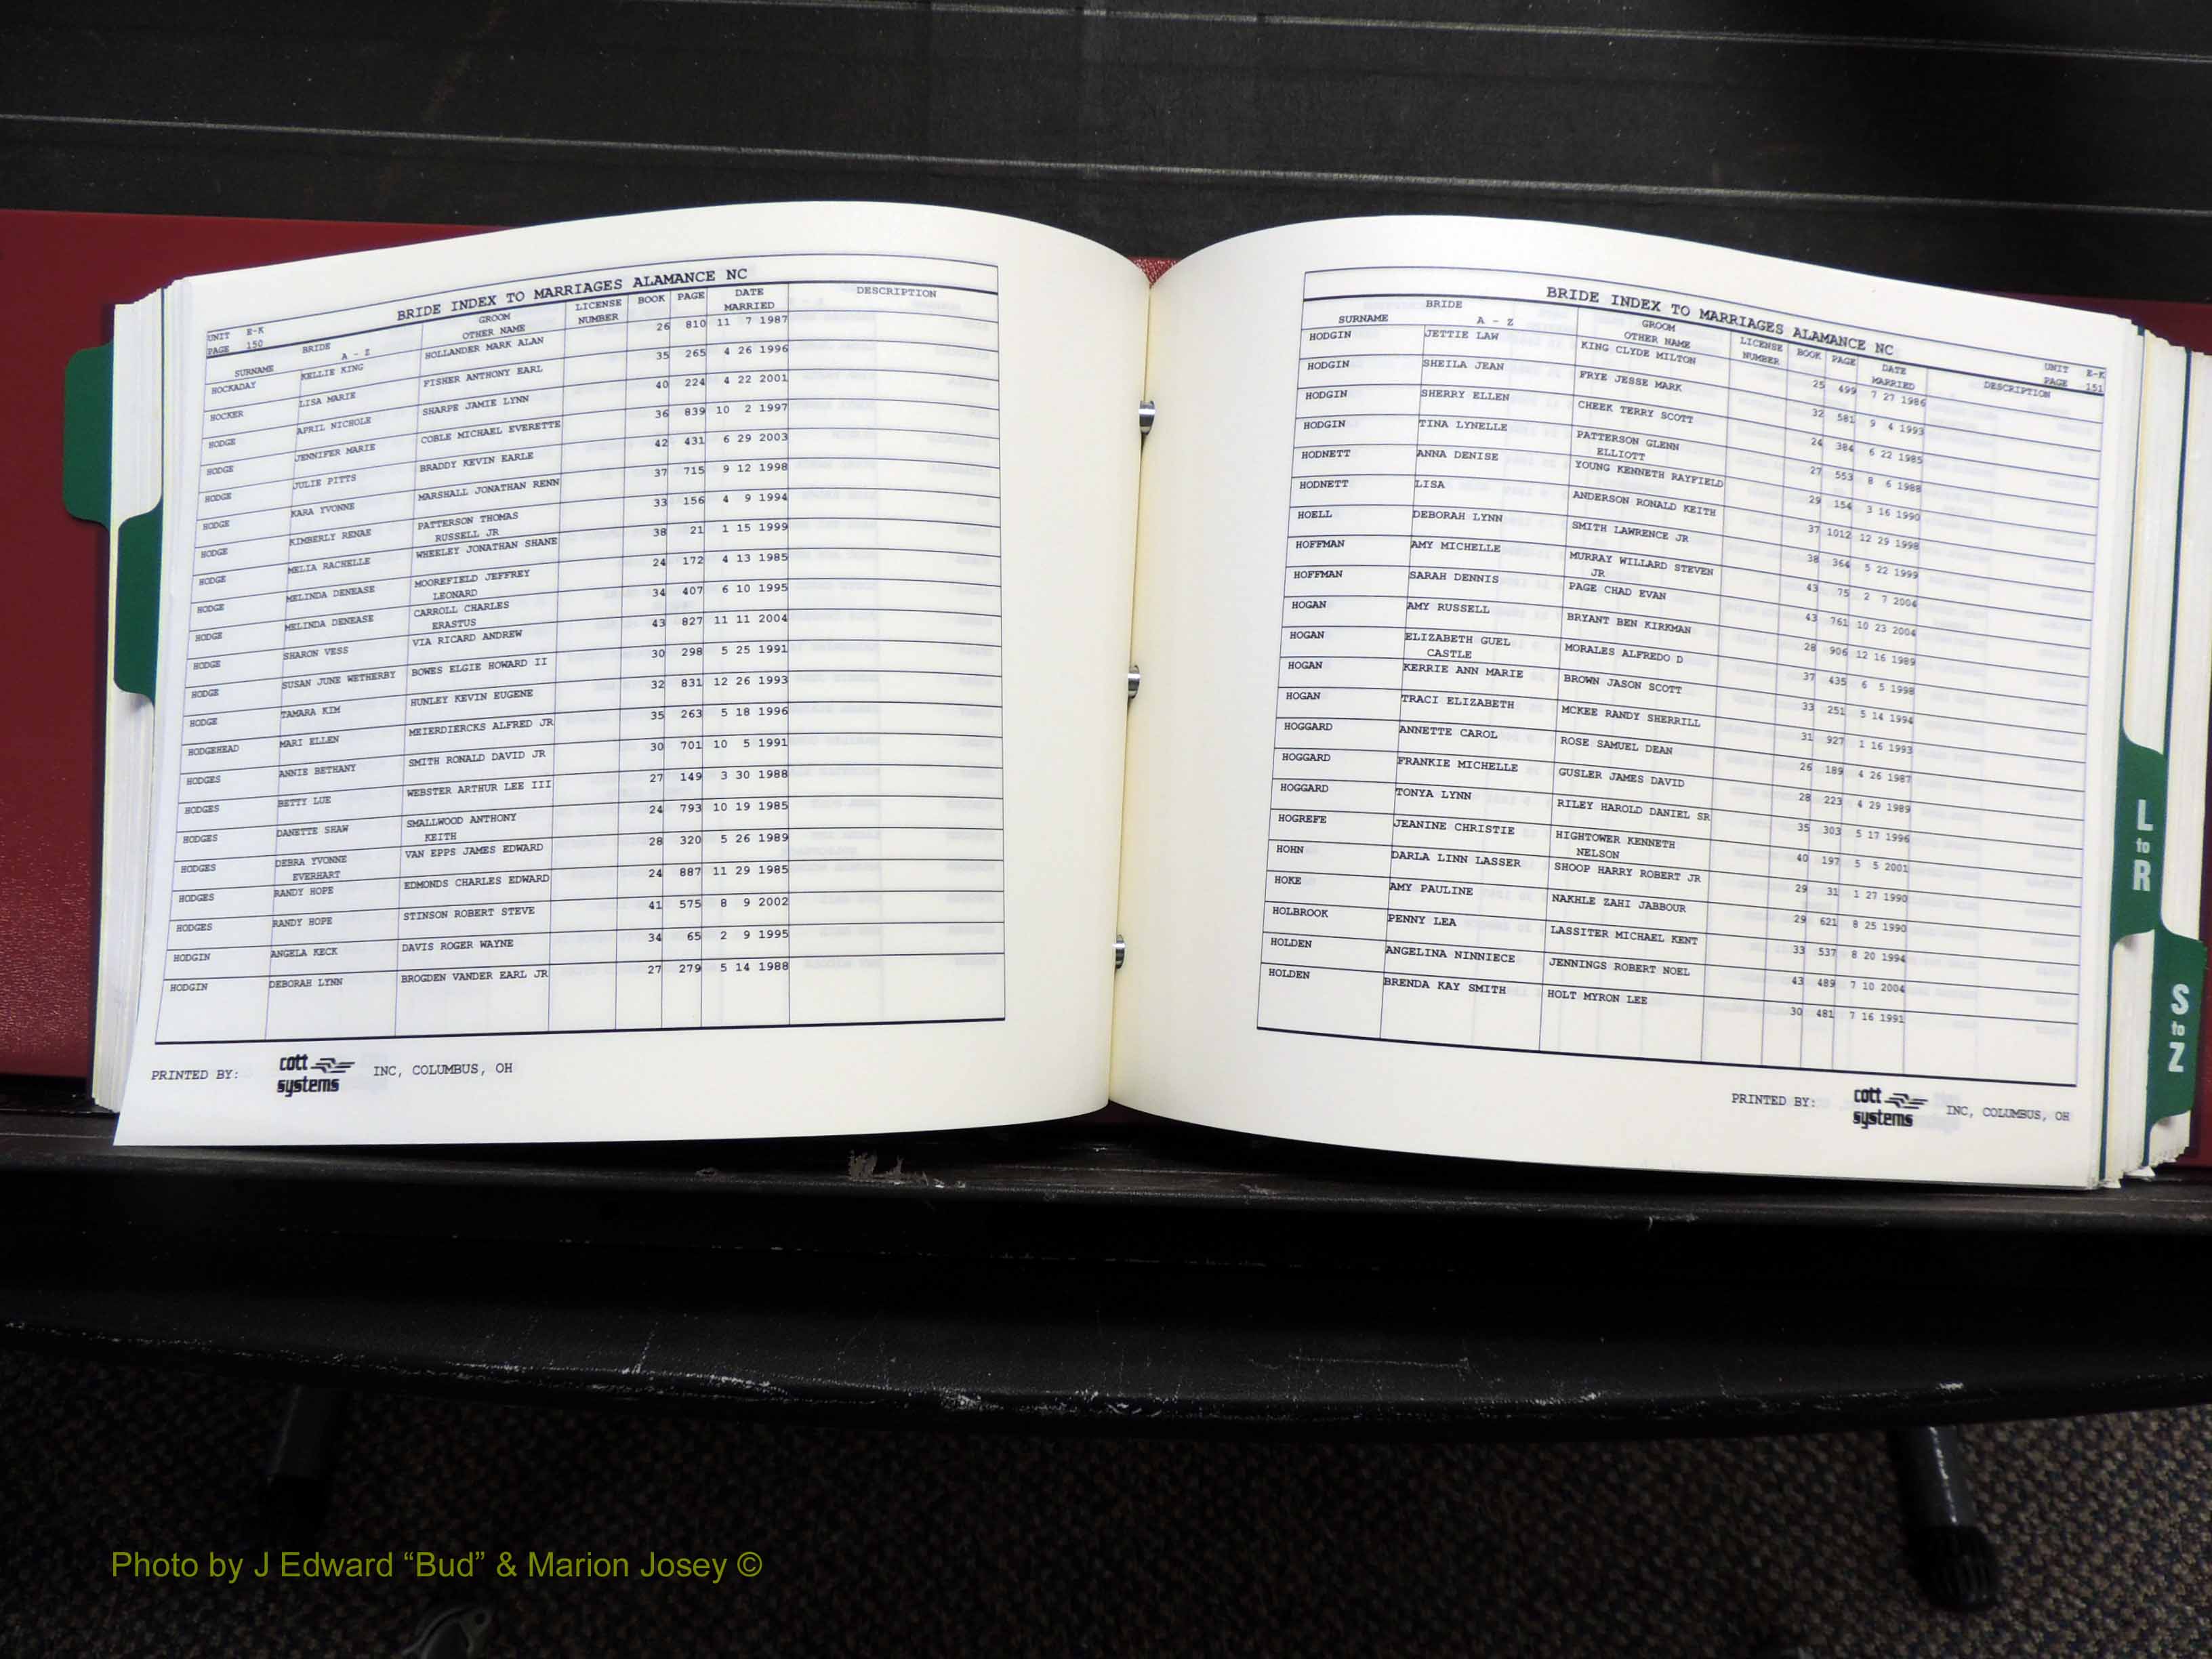 BRIDE INDEX TO MARRIAGES ALAMANCE NC
UNIT E-K
PAGE 150
SURNAME BRIDE A - Z GROOM OTHER NAME LICENSE NUMBER BOOK PAGE DATE MARRIED DESCRIPTION
HOCKADAY KELLIE KING HOLLANDER MARK ALAN 26 810 11 7 1987
HOCKER LISA MARIE FISHER ANTHONY EARL 35 265 4 26 1996
HODGE APRIL NICHOLE SHARPE JAMIE LYNN 40 224 4 22 2001
HODGE JENNIFER MARIE COBLE MICHAEL EVERETTE 36 839 10 2 1997
HODGE JULIE PITTS BRADDY KEVIN EARLE 42 431 6 29 2003
HODGE KARA YVONNE MARSHALL JONATHAN RENN 37 715 9 12 1998
HODGE KIMBERLY RENAE PATTERSON THOMAS 33 156 4 9 1994
RUSSELL JR
HODGE MELIA RACHELLE WHEELEY JONATHAN SHANE 38 21 1 15 1999
HODGE MELINDA DENEASE MOOREFIELD JEFFREY 24 172 4 13 1985
LEONARD
HODGE MELINDA DENEASE CARROLL CHARLES 34 407 6 10 1995
ERASTUS
HODGE SHARON VESS VIA RICARD ANDREW 43 827 11 11 2004
HODGE SUSAN JUNE WETHERBY BOWES ELGIE HOWARD II 30 298 5 25 1991
HODGE TAMARA KIM HUNLEY KEVIN EUGENE 32 831 12 26 1993
HODGEHEAD MARI ELLEN MEIERDIERCKS ALFRED JR 35 263 5 18 1996
HODGES ANNIE BETHANY SMITH RONALD DAVID JR 30 701 10 5 1991
HODGES BETTY LUE WEBSTER ARTHUR LEE III 27 149 3 30 1988
HODGES DANETTE SHAW SMALLWOOD ANTHONY 24 793 10 19 1985
KEITH
HODGES DEBRA YVONNE VAN EPPS JAMES EDWARD 28 320 5 26 1989
EVERHART
HODGES RANDY HOPE EDMONDS CHARLES EDWARD 24 887 11 29 1985
HODGES RANDY HOPE STINSON ROBERT STEVE 41 575 8 9 2002
HODGIN ANGELA KECK DAVIS ROGER WAYNE 34 65 2 9 1995
HODGIN DEBORAH LYNN BROGDEN VANDER EARL JR 27 279 5 14 1988
PRINTED BY: cott systems INC, COLUMBUS, OH
BRIDE INDEX TO MARRIAGES ALAMANCE NC
UNIT E-K
PAGE 151
SURNAME BRIDE A - Z GROOM OTHER NAME LICENSE NUMBER BOOK PAGE DATE MARRIED DESCRIPTION
HODGIN JETTIE LAW KING CLYDE MILTON 25 499 7 27 1986
HODGIN SHEILA JEAN FRYE JESSE MARK 32 581 9 4 1993
HODGIN SHERRY ELLEN CHEEK TERRY SCOTT 24 384 6 22 1985
HODGIN TINA LYNELLE PATTERSON GLENN 27 553 8 6 1988
ELLIOTT
HODNETT ANNA DENISE YOUNG KENNETH RAYFIELD 29 154 3 16 1990
HODNETT LISA ANDERSON RONALD KEITH 37 1012 12 29 1998
HOELL DEBORAH LYNN SMITH LAWRENCE JR 38 364 5 22 1999
HOFFMAN AMY MICHELLE MURRAY WILLARD STEVEN 43 75 2 7 2004
JR
HOFFMAN SARAH DENNIS PAGE CHAD EVAN 43 761 10 23 2004
HOGAN AMY RUSSELL BRYANT BEN KIRKMAN 28 906 12 16 1989
HOGAN ELIZABETH GUEL MORALES ALFREDO D 37 435 6 5 1998
CASTLE
HOGAN KERRIE ANN MARIE BROWN JASON SCOTT 33 251 5 14 1994
HOGAN TRACI ELIZABETH MCKEE RANDY SHERRILL 31 927 1 16 1993
HOGGARD ANNETTE CAROL ROSE SAMUEL DEAN 26 189 4 26 1987
HOGGARD FRANKIE MICHELLE GUSLER JAMES DAVID 28 223 4 29 1989
HOGGARD TONYA LYNN RILEY HAROLD DANIEL SR 35 303 5 17 1996
HOGREFE JEANINE CHRISTIE HIGHTOWER KENNETH 40 197 5 5 2001
NELSON
HOHN DARLA LINN LASSER SHOOP HARRY ROBERT JR 29 31 1 27 1990
HOKE AMY PAULINE NAKHLE ZAHI JABBOUR 29 621 8 25 1990
HOLBROOK PENNY LEA LASSITER MICHAEL KENT 33 537 8 20 1994
HOLDEN ANGELINA NINNIECE JENNINGS ROBERT NOEL 43 489 7 10 2004
HOLDEN BRENDA KAY SMITH HOLT MYRON LEE 30 481 7 16 1991
PRINTED BY: cott systems INC, COLUMBUS, OH
L to R
S to Z
Photo by J Edward “Bud” & Marion Josey ©